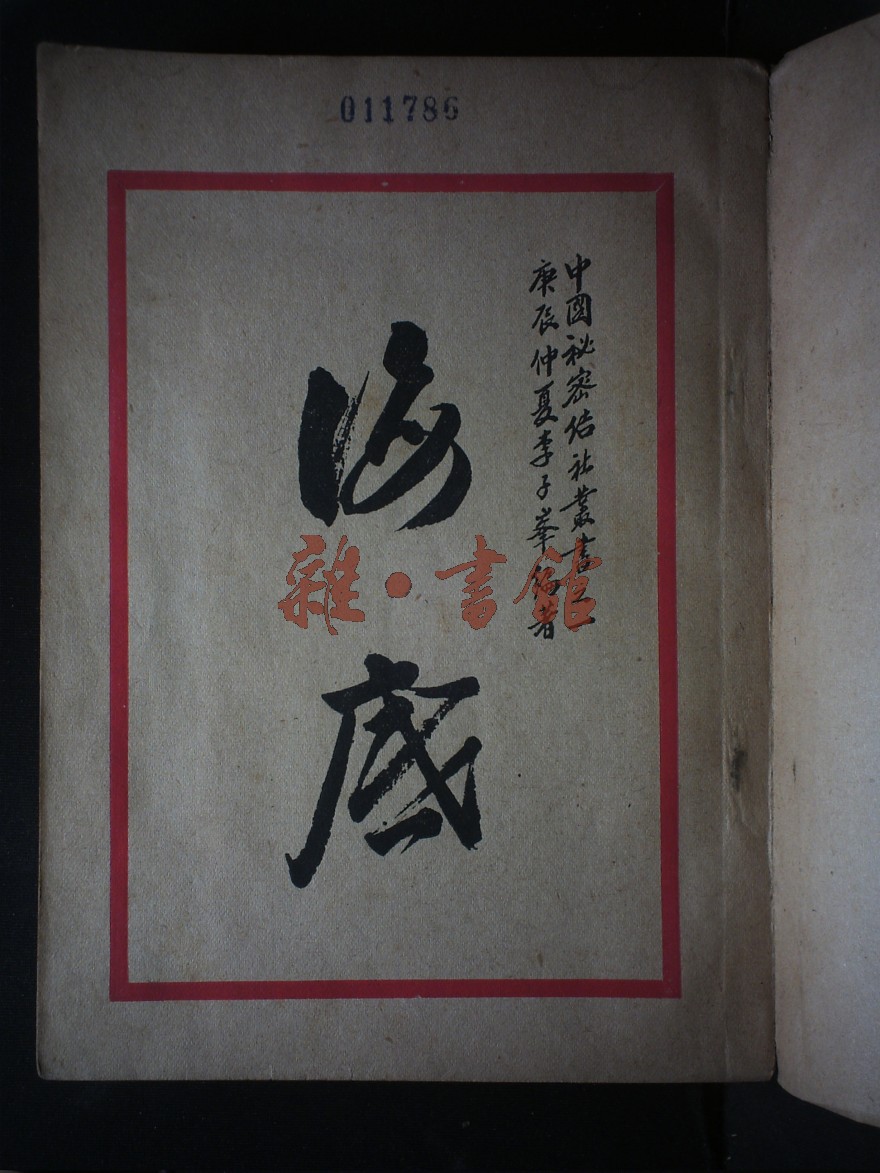 011786
中國祕密結社叢書之一
庚辰仲夏李子峯編著
海底
雜·書館